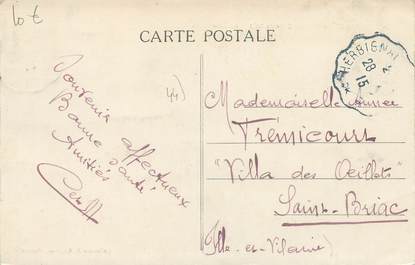 10 €
CARTE POSTALE
HERBIGNAC
28
15
44)
Souvenir affectueux
Bonne santé
Amitiés
Mademoiselle Aimée
Trémicourt
"Villa des Oeillets"
Saint-Briac
Ille-et-Vilaine)